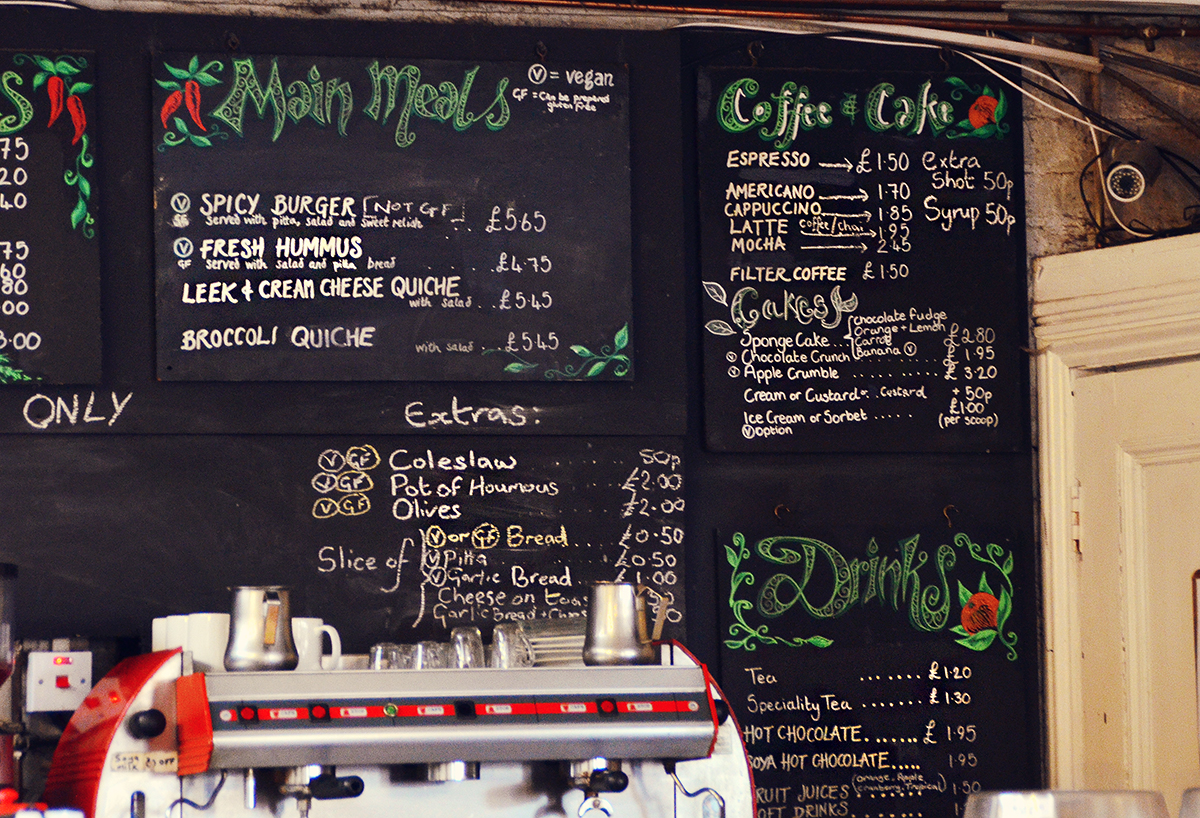 S
75
20
40
75
60
80
00
3.00
ONLY
Main Meals
Ⓥ = vegan
GF = Can be prepared gluten free
Ⓥ SPICY BURGER [NOT GF] £5.65
Served with pitta, salad and sweet relish
Ⓥ FRESH HUMMUS
GF Served with salad and pitta bread £4.75
LEEK & CREAM CHEESE QUICHE
with salad .. £5.45
BROCCOLI QUICHE with salad .. £5.45
Extras:
Ⓥ GF Coleslaw 50p
Ⓥ GF Pot of Houmous £2.00
Ⓥ GF Olives £2.00
Slice of
Ⓥ or GF Bread £0.50
Ⓥ Pitta £0.50
Ⓥ Garlic Bread £1.00
Cheese on
Garlic Bread +
Coffee & Cake
ESPRESSO → £1.50
extra Shot 50p
AMERICANO → 1.70
CAPPUCCINO → 1.85
Syrup 50p
LATTE coffee/chai → 1.95
MOCHA → 2.45
FILTER COFFEE £1.50
Cakes
Sponge Cake .. { chocolate fudge
Orange + Lemon £2.80
Carrot
Banana Ⓥ
Ⓥ Chocolate Crunch £1.95
Ⓥ Apple Crumble £3.20
Cream or Custard or .. custard + 50p
Ice Cream or Sorbet ..... £1.00
Ⓥ option (per scoop)
Drinks
Tea ...... £1.20
Speciality Tea ...... £1.30
HOT CHOCOLATE ...... £1.95
SOYA HOT CHOCOLATE ..... 1.95
FRUIT JUICES (orange, Apple 1.50
cranberry, Tropical)
SOFT DRINKS